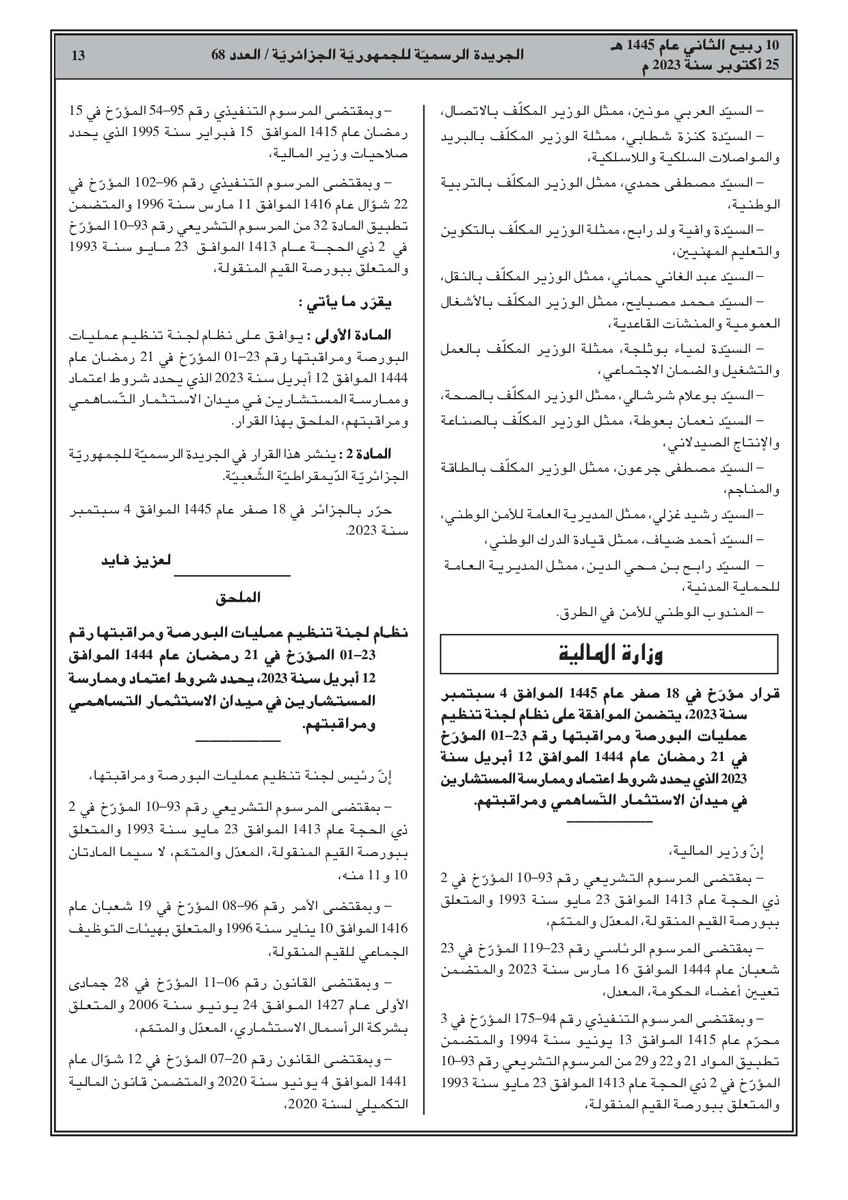 10 ربيع الثاني عام 1445 هـ
25 أكتوبر سنة 2023 م
الجريدة الرسميّة للجمهوريّة الجزائريّة / العدد 68
13
– السيّد العربي مونين، ممثل الوزير المكلّف بالاتصال،
– السيّدة كنزة شطابي، ممثلة الوزير المكلّف بالبريد
والمواصلات السلكية واللاسلكية،
– السيّد مصطفى حمدي، ممثل الوزير المكلّف بالتربية
الوطنية،
– السيّدة وافية ولد رابح، ممثلة الوزير المكلّف بالتكوين
والتعليم المهنيين،
– السيّد عبد الغاني حماني، ممثل الوزير المكلّف بالنقل،
– السيّد محمد مصبايح، ممثل الوزير المكلّف بالأشغال
العمومية والمنشآت القاعدية،
– السيّدة لمياء بوثلجة، ممثلة الوزير المكلف بالعمل
والتشغيل والضمان الاجتماعي،
– السيّد بوعلام شرشالي، ممثل الوزير المكلّف بالصحة،
– السيّد نعمان بغوطة، ممثل الوزير المكلف بالصناعة
والإنتاج الصيدلاني،
– السيّد مصطفى جرعون، ممثل الوزير المكلف بالطاقة
والمناجم،
– السيّد رشيد غزلي، ممثل المديرية العامة للأمن الوطني،
– السيّد أحمد ضياف، ممثل قيادة الدرك الوطني،
– السيّد رابح بن محي الدين، ممثل المديرية العامة
للحماية المدنية،
– المندوب الوطني للأمن في الطرق.
وزارة المالية
قرار مؤرّخ في 18 صفر عام 1445 الموافق 4 سبتمبر
سنة 2023، يتضمن الموافقة على نظام لجنة تنظيم
عمليات البورصة ومراقبتها رقم 23–01 المؤرّخ
في 21 رمضان عام 1444 الموافق 12 أبريل سنة
2023 الذي يحدد شروط اعتماد وممارسة المستشارين
في ميدان الاستثمار التّساهمي ومراقبتهم.
إنّ وزير المالية،
– بمقتضى المرسوم التشريعي رقم 93–10 المؤرّخ في 2
ذي الحجة عام 1413 الموافق 23 مايو سنة 1993 والمتعلق
ببورصة القيم المنقولة، المعدّل والمتمّم،
– بمقتضى المرسوم الرئاسي رقم 23–119 المؤرّخ في 23
شعبان عام 1444 الموافق 16 مارس سنة 2023 والمتضمن
تعيين أعضاء الحكومة، المعدل،
– وبمقتضى المرسوم التنفيذي رقم 94–175 المؤرّخ في 3
محرّم عام 1415 الموافق 13 يونيو سنة 1994 والمتضمن
تطبيق المواد 21 و 22 و 29 من المرسوم التشريعي رقم 93–10
المؤرّخ في 2 ذي الحجة عام 1413 الموافق 23 مايو سنة 1993
والمتعلق ببورصة القيم المنقولة،
– وبمقتضى المرسوم التنفيذي رقم 95–54 المؤرّخ في 15
رمضان عام 1415 الموافق 15 فبراير سنة 1995 الذي يحدد
صلاحيات وزير المالية،
– وبمقتضى المرسوم التنفيذي رقم 96–102 المؤرّخ في
22 شوّال عام 1416 الموافق 11 مارس سنة 1996 والمتضمن
تطبيق المادة 32 من المرسوم التشريعي رقم 93–10 المؤرّخ
في 2 ذي الحجة عام 1413 الموافق 23 مايو سنة 1993
والمتعلق ببورصة القيم المنقولة،
يقرّر ما يأتي :
المادة الأولى : يوافق على نظام لجنة تنظيم عمليات
البورصة ومراقبتها رقم 23–01 المؤرّخ في 21 رمضان عام
1444 الموافق 12 أبريل سنة 2023 الذي يحدد شروط اعتماد
وممارسة المستشارين في ميدان الاستثمار التّساهمي
ومراقبتهم، الملحق بهذا القرار.
المادة 2 : ينشر هذا القرار في الجريدة الرسميّة للجمهوريّة
الجزائريّة الدّيمقراطيّة الشّعبيّة.
حرّر بالجزائر في 18 صفر عام 1445 الموافق 4 سبتمبر
سنة 2023.
لعزيز فايد
الملحق
نظام لجنة تنظيم عمليات البورصة ومراقبتها رقم
23–01 المؤرّخ في 21 رمضان عام 1444 الموافق
12 أبريل سنة 2023، يحدد شروط اعتماد وممارسة
المستشارين في ميدان الاستثمار التساهمي
ومراقبتهم.
إنّ رئيس لجنة تنظيم عمليات البورصة ومراقبتها،
– بمقتضى المرسوم التشريعي رقم 93–10 المؤرّخ في 2
ذي الحجة عام 1413 الموافق 23 مايو سنة 1993 والمتعلق
ببورصة القيم المنقولة، المعدّل والمتمّم، لا سيما المادتان
10 و 11 منه،
– وبمقتضى الأمر رقم 96–08 المؤرّخ في 19 شعبان عام
1416 الموافق 10 يناير سنة 1996 والمتعلق بهيئات التوظيف
الجماعي للقيم المنقولة،
– وبمقتضى القانون رقم 06–11 المؤرّخ في 28 جمادى
الأولى عام 1427 الموافق 24 يونيو سنة 2006 والمتعلق
بشركة الرأسمال الاستثماري، المعدّل والمتمّم،
– وبمقتضى القانون رقم 20–07 المؤرّخ في 12 شوّال عام
1441 الموافق 4 يونيو سنة 2020 والمتضمن قانون المالية
التكميلي لسنة 2020،